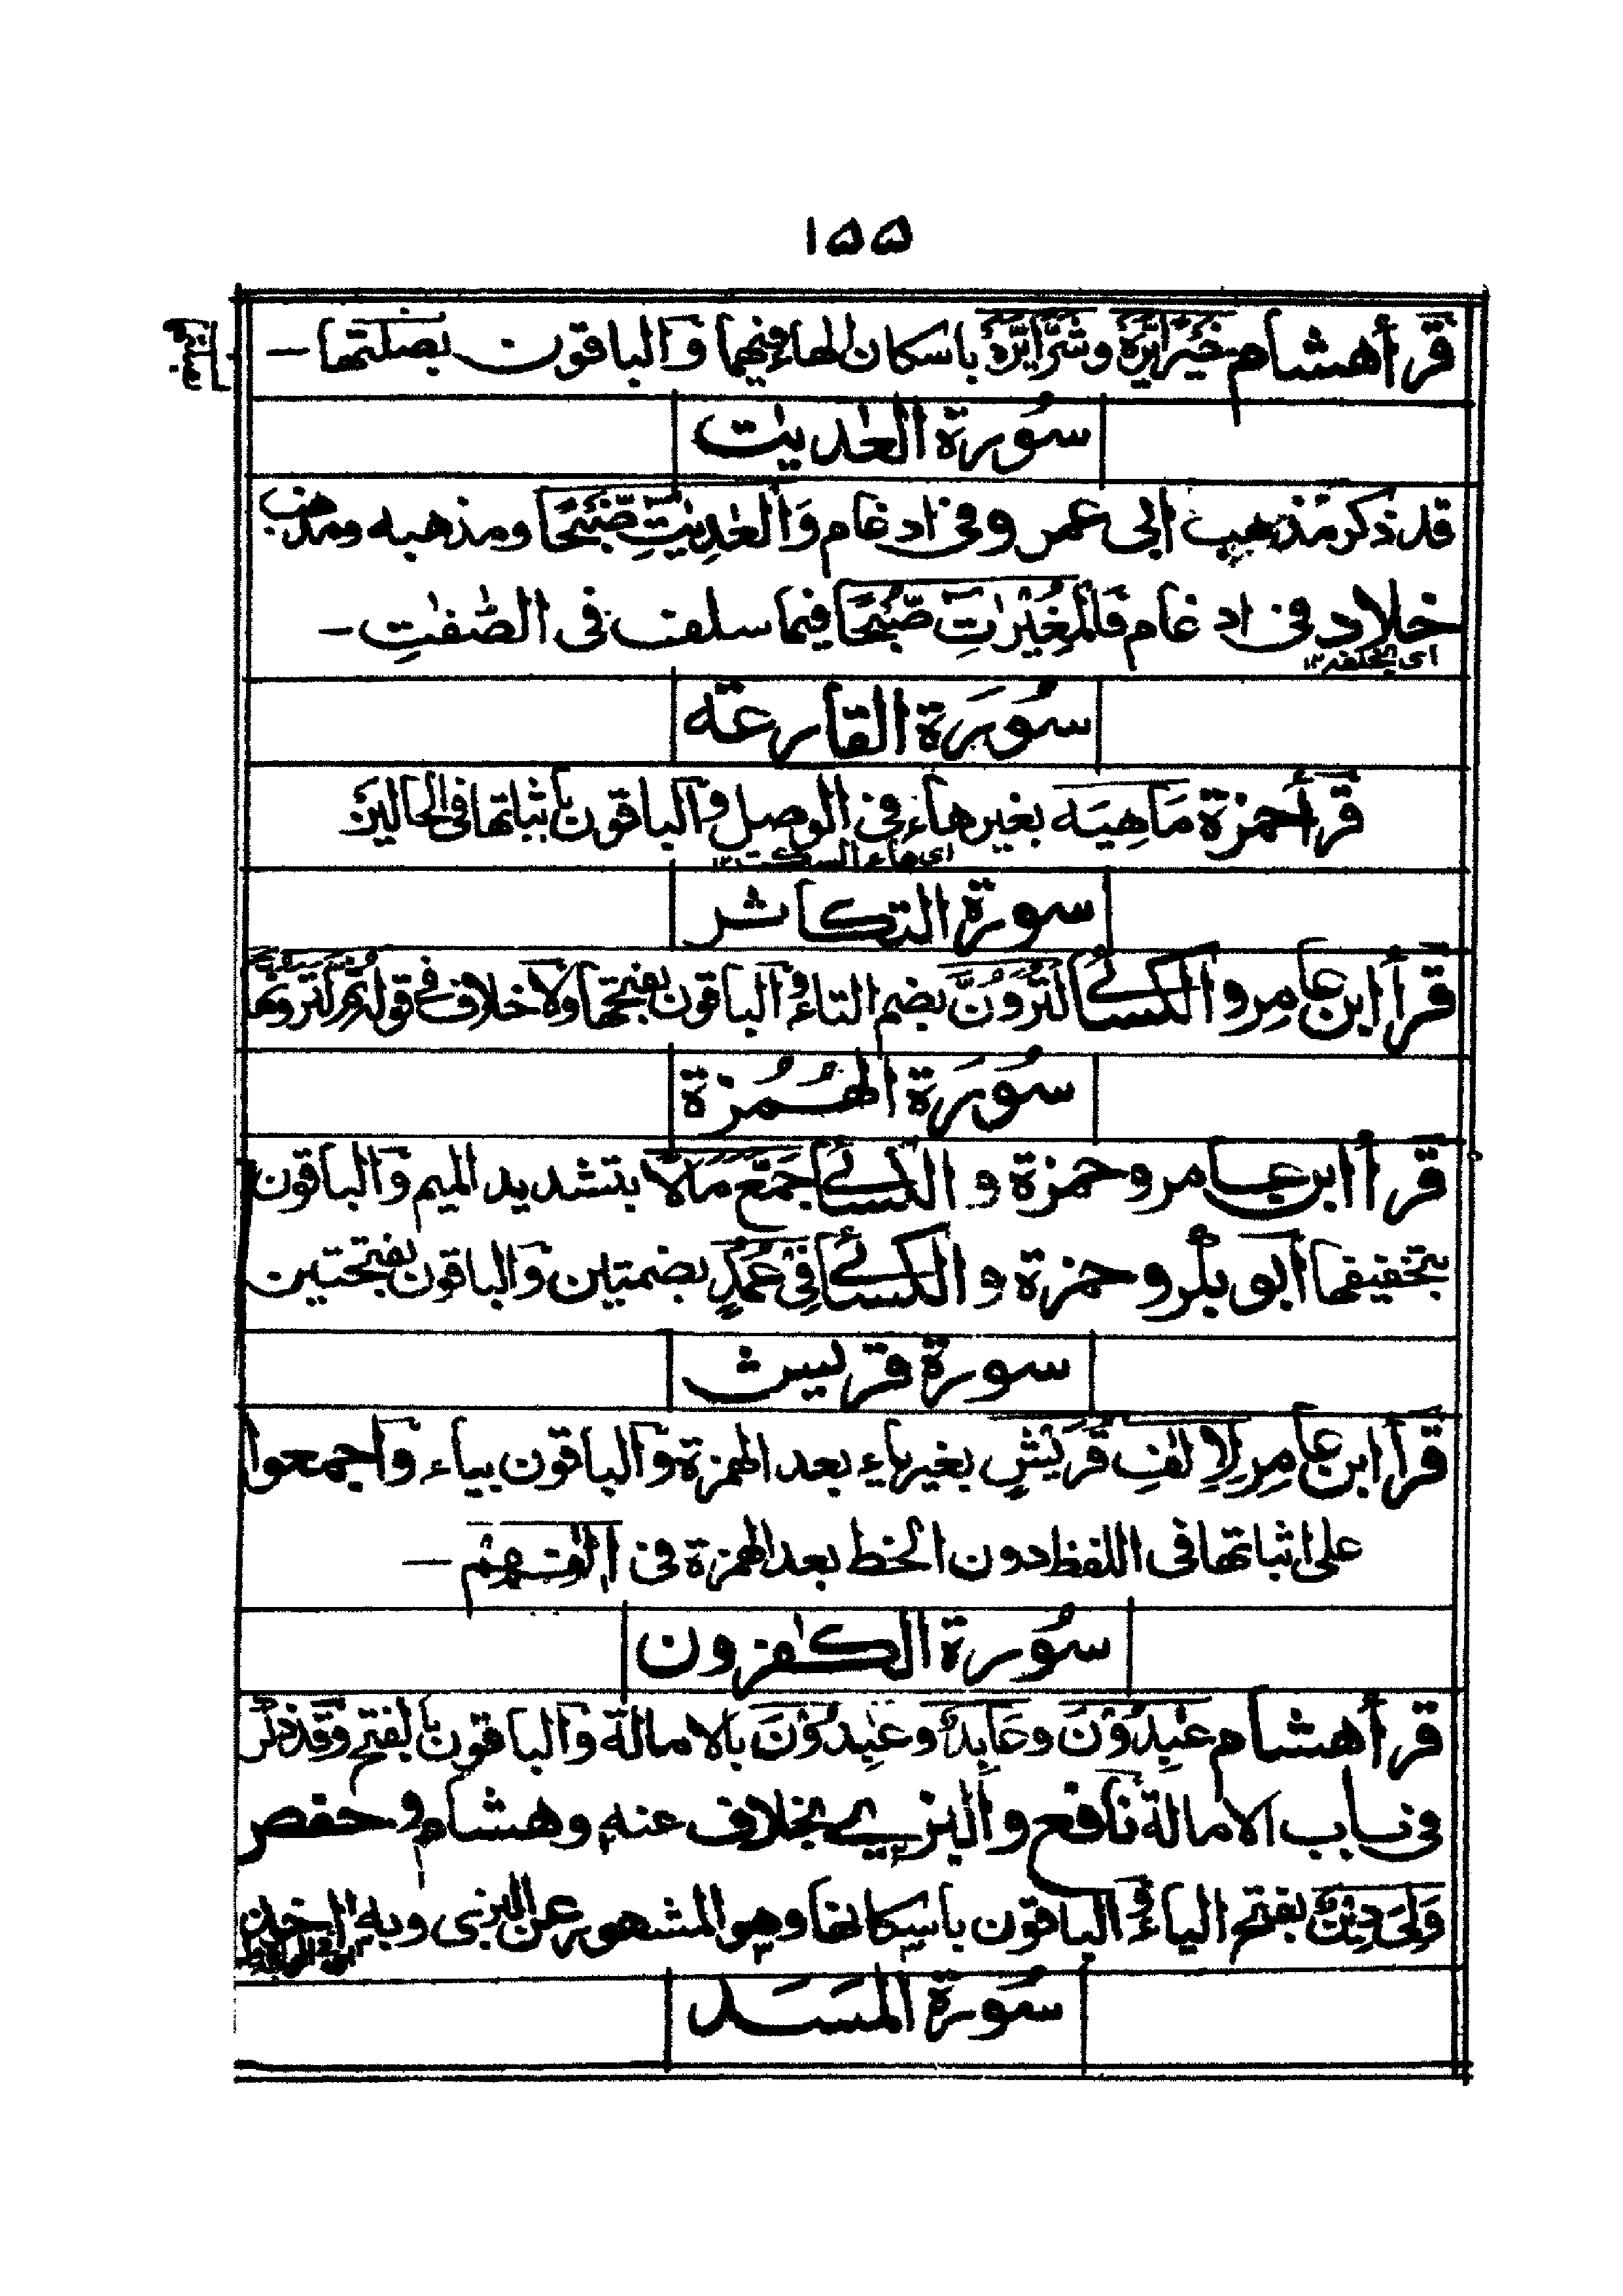 ١٥٥
قرأ هشام خَيْرًا يَّرَهْ وشَرًّا يَّرَهْ باسكان الهاء فيهما والباقون بصلتهما ـ
سُورة العٰديٰت
قد ذكر مذهب ابى عمرو فى ادغام وَالْعٰدِيٰتِ ضَّبْحًا ومذهبه ومذهب
خلاد فى ادغام فَالْمُغِيْرٰتِ صُّبْحًا فيما سلف فى الصّٰفٰتِ ـ
اى بخلفه ١٢
سُورَة القارعة
قرأ حمزة مَاهِيَه بغير هاء فى الوصل والباقون باثباتها فى الحالين
اى هاء السكت ١٢
سورة التكاثر
قرأ ابن عامر والكسائے لَتُرَوُنَّ بضم التاء والباقون بفتحها ولا خلاف فى قوله ثم لترونها
سُورَة الهُمُزة
قرأ ابن عامر وحمزة و الكسائے جَمَّعَ مَالًا بتشديد الميم والباقون
بتخفيفها أبو بكر وحمزة و الكسائے فِىْ عُمُدٍ بضمتين والباقون بفتحتين
سورة قريش
قرأ ابن عامر لِاِلٰفِ قُرَيْشٍ بغير ياء بعد الهمزة والباقون بياء واجمعوا
على اثباتها فى اللفظ دون الخط بعد الهمزة فى اٖلٰفِهِمْ ـ
سُورة الكٰفرون
قرأ هشام عٰبِدُوْنَ وعَابِدٌ وعٰبِدُوْنَ بالامالة والباقون بالفتح وقد ذكر
فى باب الامالة نافع والبزى بخلاف عنه وهشام وحفص
وَلِىَ دِيْنِ بفتح الياء والباقون باسكانها وهو المشهور عن البزى وبه اٰخذ
سُورة المَسَد